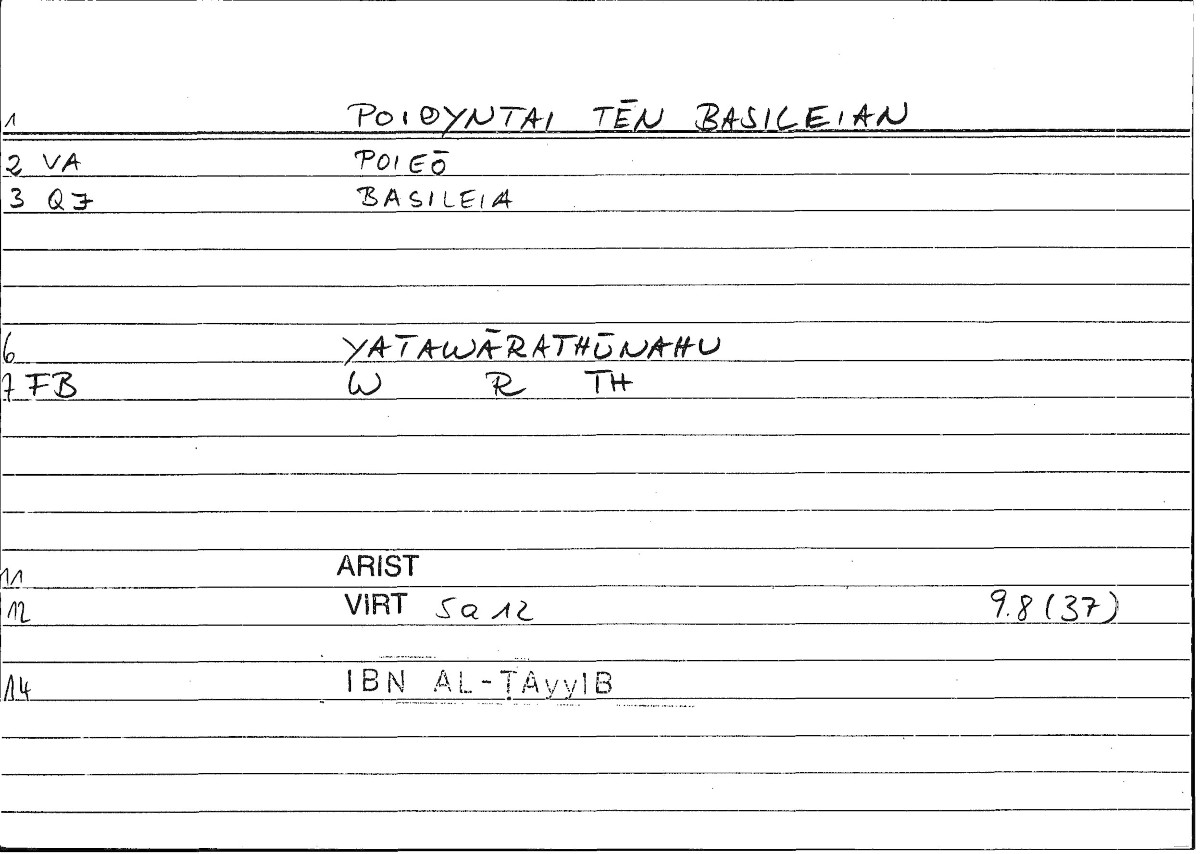 1 POIOYNTAI TĒN BASILEIAN
2 VA POIEŌ
3 Q7 BASILEIA
6 YATAWĀRATHŪNAHU
7 FB W R TH
11 ARIST
12 VIRT 5a12 9.8 (37)
14 IBN AL-ṬAyyIB